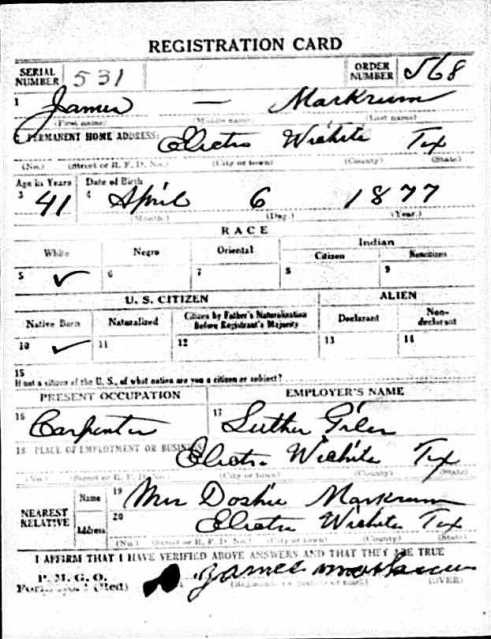 REGISTRATION CARD
SERIAL NUMBER 531 ORDER NUMBER 568
1 James — Markrum
(First name) (Middle name) (Last name)
2 PERMANENT HOME ADDRESS: Electra Wichita Tex
(No.) (Street or R. F. D. No.) (City or town) (County) (State)
Age in Years Date of Birth
3 41 4 April 6 1877
(Month.) (Day.) (Year.)
RACE
White Negro Oriental Indian
Citizen Noncitizen
5 ✓ 6 7 8 9
U. S. CITIZEN ALIEN
Native Born Naturalized Citizen by Father's Naturalization Before Registrant's Majority Declarant Non-declarant
10 ✓ 11 12 13 14
15
If not a citizen of the U. S., of what nation are you a citizen or subject?
PRESENT OCCUPATION EMPLOYER'S NAME
16 Carpenter 17 Luther
18 PLACE OF EMPLOYMENT OR BUSINESS Electra Wichita Tex
(No.) (Street or R. F. D. No.) (City or town) (County) (State)
NEAREST RELATIVE Name 19 Mrs Doshie Markrum
Address 20 Electra Wichita Tex
(No.) (Street or R. F. D. No.) (City or town) (County) (State)
I AFFIRM THAT I HAVE VERIFIED ABOVE ANSWERS AND THAT THEY ARE TRUE
P. M. G. O.
Form (Red) James Markrum (OVER)